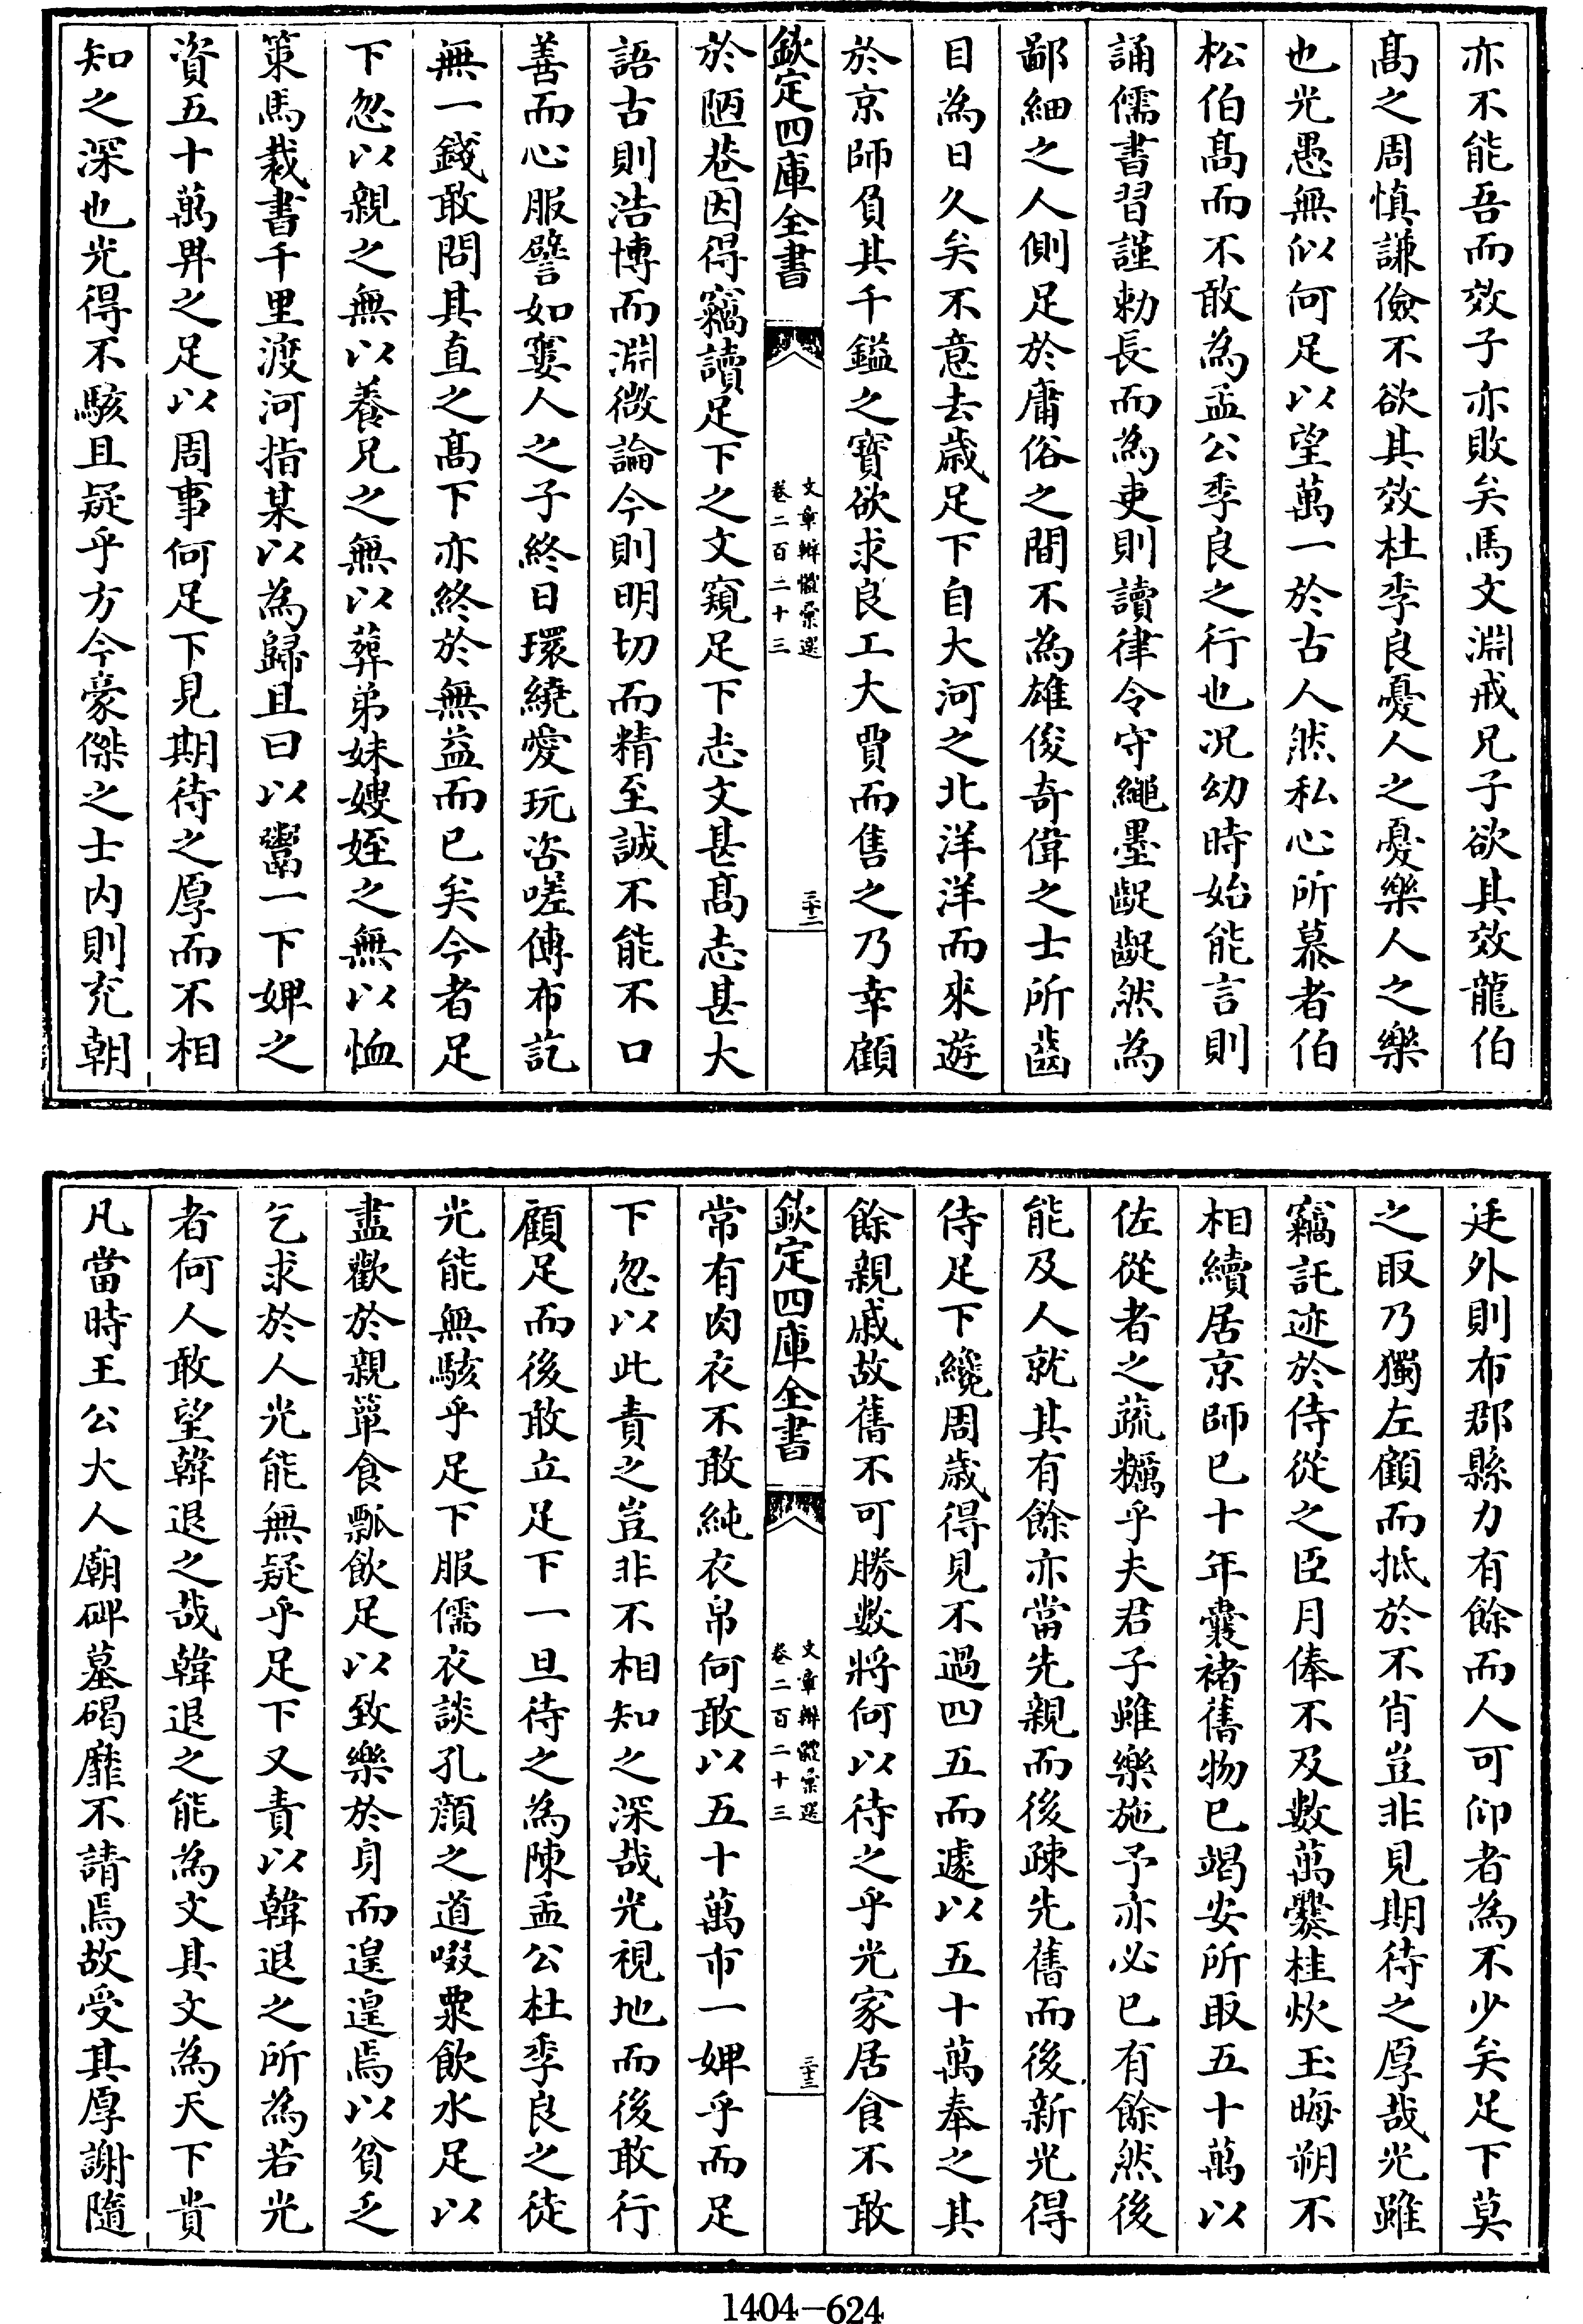 亦不能吾而效子亦敗矣馬文淵戒兄子欲其效龍伯
髙之周慎謙儉不欲其效杜季良憂人之憂樂人之樂
也光愚無似何足以望萬一於古人然私心所慕者伯
松伯髙而不敢為孟公季良之行也况幼時始能言則
誦儒書習謹勅長而為吏則讀律令守繩墨齪齪然為
鄙細之人側足於庸俗之間不為雄俊奇偉之士所齒
目為日久矣不意去歲足下自大河之北洋洋而來遊
於京師負其千鎰之寳欲求良工大賈而售之乃幸顧
欽定四庫全書
文章辨體彚選
卷二百二十三
三十二
於陋巷因得竊讀足下之文窺足下志文甚髙志甚大
語古則浩博而淵微論今則明切而精至誠不能不口
善而心服譬如窶人之子終日環繞愛玩咨嗟傳布訖
無一錢敢問其直之髙下亦終於無益而已矣今者足
下忽以親之無以養兄之無以葬弟妹嫂姪之無以恤
策馬裁書千里渡河指某以為歸且曰以鬻一下婢之
資五十萬畀之足以周事何足下見期待之厚而不相
知之深也光得不駭且疑乎方今豪傑之士内則充朝
廷外則布郡縣力有餘而人可仰者為不少矣足下莫
之取乃獨左顧而抵於不肖豈非見期待之厚哉光雖
竊託迹於侍從之臣月俸不及數萬爨桂炊玉晦朔不
相續居京師已十年囊褚舊物已竭安所取五十萬以
佐從者之蔬糲乎夫君子雖樂施予亦必已有餘然後
能及人就其有餘亦當先親而後疎先舊而後新光得
侍足下纔周歲得見不過四五而遽以五十萬奉之其
餘親戚故舊不可勝數將何以待之乎光家居食不敢
欽定四庫全書
文章辨體彚選
卷二百二十三
三十三
常有肉衣不敢純衣帛何敢以五十萬市一婢乎而足
下忽以此責之豈非不相知之深哉光視地而後敢行
顧足而後敢立足下一旦待之為陳孟公杜季良之徒
光能無駭乎足下服儒衣談孔顔之道啜粟飲水足以
盡歡於親簞食瓢飲足以致樂於身而遑遑焉以貧乏
乞求於人光能無疑乎足下又責以韓退之所為若光
者何人敢望韓退之哉韓退之能為文其文為天下貴
凡當時王公大人廟碑墓碣靡不請焉故受其厚謝隨
1404—624